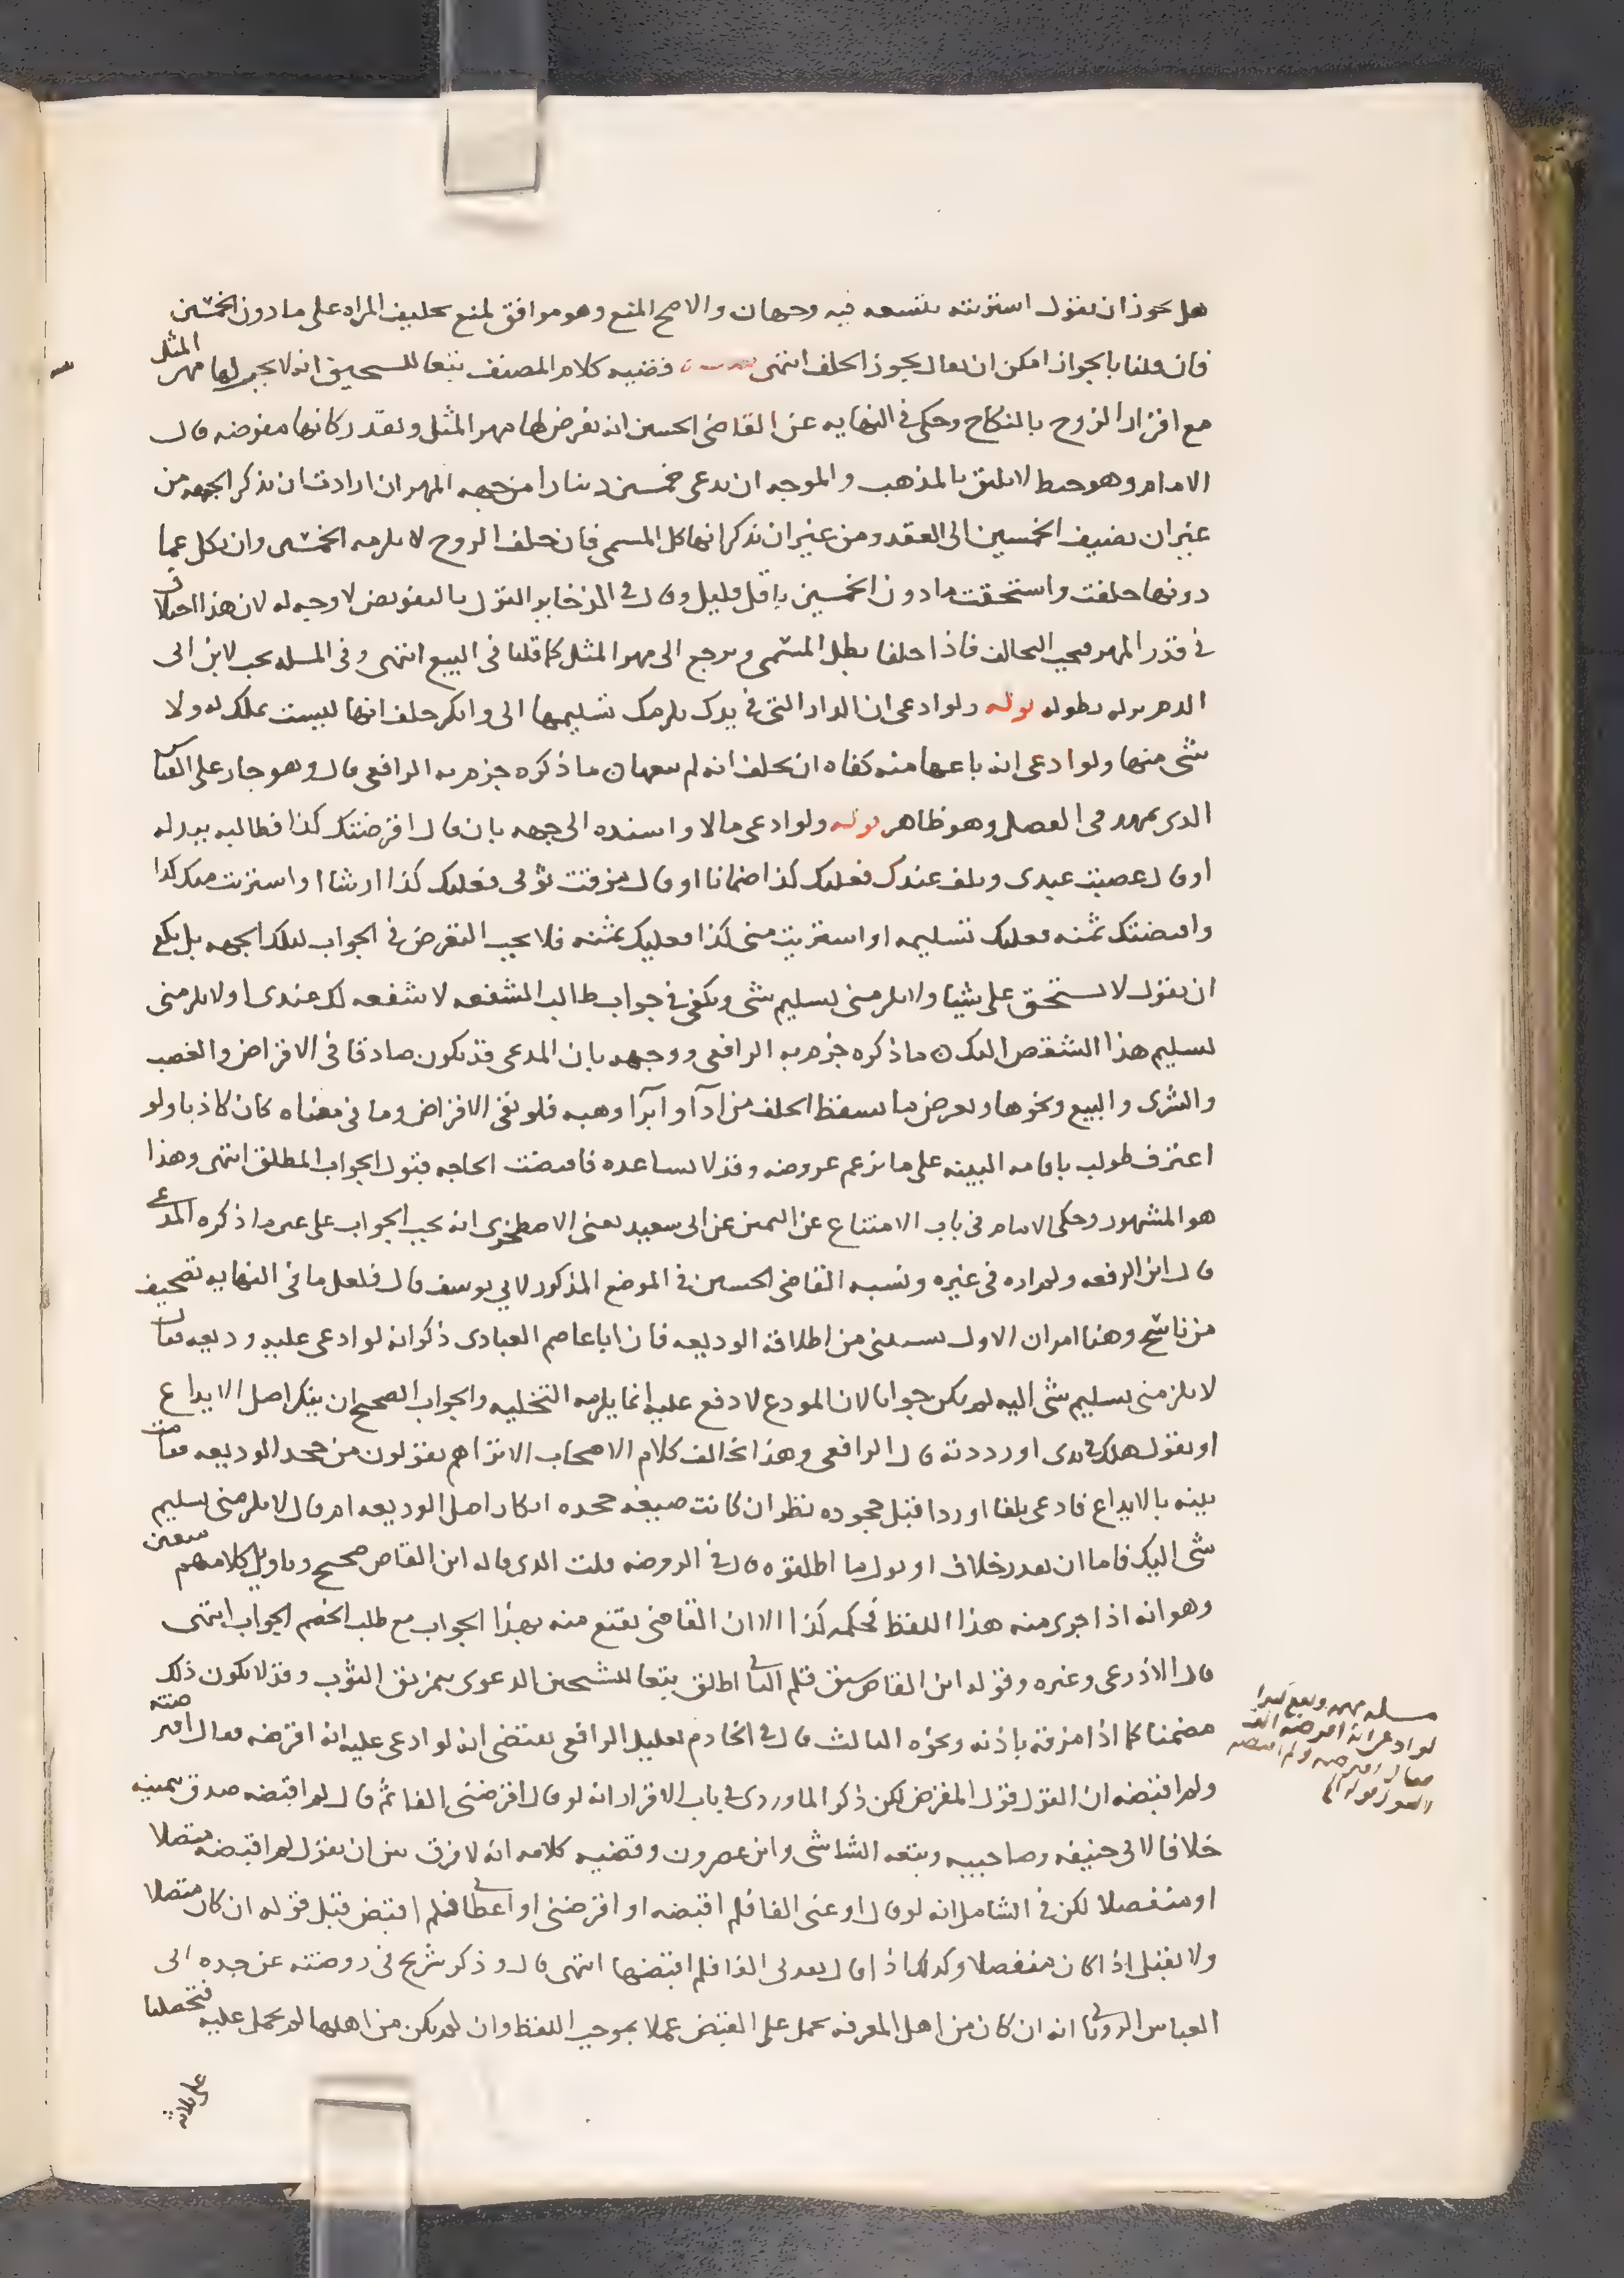 هل يجوز ان يقول اشتريته بتسعه فيه وجهان والاصح المنع وهو موافق لمنع تحليف المراه على ما دون الخمسين
فان قلنا بالجواز امكن ان يقال يجوز الحلف انتهى قضيه كلام المصنف تبعا للشيخين انه لا يجب لها مهر المثل
مع اقرار الزوج بالنكاح وحكى في النهايه عن القاضي الحسين انه يفرض لها مهر المثل ويقدر كانها مفوضه قال
الامام وهو خبط لا يليق بالمذهب والموجه ان يدعى خمسين دينارا من جهه المهر ان ارادت ان تذكر الجهه من
غير ان تضيف الخمسين الى العقد ومن غير ان تذكر انها كل المسمى فان حلف الزوج لا يلزمه الخمسين وان نكل عما
دونها حلفت واستحقت ما دون الخمسين باقل قليل وقال في الذخاير القول بالتفويض لا وجه له لان هذا اختلاف
في قدر المهر فيجب التحالف فاذا حلفا بطل المسمى ويرجع الى مهر المثل كما قلنا في البيع انتهى وفي المسله بحث لابن ابى
الدم بطوله قوله ولو ادعى ان الدار التي في يدك يلزمك تسليمها الى وانكر حلف انها ليست بملك له ولا
شى منها ولو ادعى انه باعها منه كفاه ان يحلف انه لم يبعها ما ذكره جزم به الرافعى قال وهو جار على القياس
الذى تمهد فى الفصل وهو ظاهر قوله ولو ادعى مالا واسنده الى جهه بان قال اقرضتك كذا فطالبه ببدله
او قال غصبت عبدى وتلف عندك فعليك كذا ضمانا او قال مزقت ثوبى فعليك كذا ارشا او اشتريت منك كذا
واقبضتك ثمنه فعليك تسليمه او اشتريت منى كذا فعليك ثمنه فلا يجب التعرض في الجواب لتلك الجهه بل يكفى
ان يقول لا تستحق على شيا ولا يلزمنى تسليم شى ويكفى في جواب طالب الشفعه لا شفعه لك عندى او لا يلزمنى
تسليم هذا الشقص اليك ما ذكره جزم به الرافعى ووجهه بان المدعى قد يكون صادقا في الاقراض والغصب
والشرى والبيع ونحوها ويعرض ما يسقط الحلف من ادآ او ابرآ او هبه فلو نفى الاقراض وما في معناه كان كاذبا ولو
اعترف طولب باقامه البينه على ما يزعم عروضه وقد لا تساعده فاقتضت الحاجه قبول الجواب المطلق انتهى وهذا
هو المشهور وحكى الامام في باب الامتناع عن اليمين عن ابى سعيد يعنى الاصطخرى انه يجب الجواب على عين ما ذكره المدعى
قال ابن الرفعه ولم اره في غيره ونسبه القاضي الحسين في الموضع المذكور لابي يوسف قال فلعل ما في النهايه تصحيف
من ناسخ وهنا امران الاول يستثنى من اطلاقه الوديعه فان ابا عاصم العبادى ذكر انه لو ادعى عليه وديعه فقال
لا يلزمنى تسليم شى اليه لم يكن جوابا لان المودع لا دفع عليه انما يلزمه التخليه والجواب الصحيح ان ينكر اصل الايداع
او يقول هلك في يدى او رددته قال الرافعى وهذا يخالف كلام الاصحاب الا تراهم يقولون من جحد الوديعه فقامت
بينه بالايداع فادعى تلفا او ردا قبل جحوده نظر ان كانت صيغه جحده انكار اصل الوديعه ام قال لا يلزمنى تسليم
شى اليك فاما ان يقدر خلاف او يول ما اطلقوه قال في الروضه قلت الذى قاله ابن القاص صحيح وتاويل كلامهم متعين
وهو انه اذا جرى منه هذا اللفظ فحكمه كذا الا ان القاضي يقنع منه بهذا الجواب مع طلب الخصم الجواب انتهى
قال الاذرعى وغيره وقوله ابن القاص سبق قلم الثانى اطلق تبعا للشيخين الدعوى بتمزيق الثوب وقد لا يكون ذلك
مضمنا كما اذا مزقه باذنه ونحوه الثالث قال في الخادم تعليل الرافعى يقتضى انه لو ادعى عليه انه اقرضه فقال اقرضته
ولم اقبضه ان القول قول المقرض لكن ذكر الماوردى في باب الاقرار انه لو قال اقرضنى الفا ثم قال لم اقبضه صدق بيمينه
خلافا لابى حنيفه وصاحبيه وتبعه الشاشى وابن عصرون وقضيه كلامه انه لا فرق بين ان يقول لم اقبضه متصلا
او منفصلا لكن في الشامل انه لو قال اودعنى الفا فلم اقبضه او اقرضنى او اعطانى فلم اقبض قبل قوله ان كان متصلا
ولا يقبل اذا كان منفصلا وكذلك اذا قال نقدنى الفا فلم اقبضها انتهى قال وذكر شريح في روضته عن جده ابى
العباس الرويانى انه ان كان من اهل المعرفه حمل على القبض عملا بموجب اللفظ وان لم يكن من اهلها لم يحمل عليه فتحصلنا
على ثلاثه
مسله مهمه وتقع كثيرا
لو ادعى انه اقرضه الف
فقال اقرضه ولم اقبضه